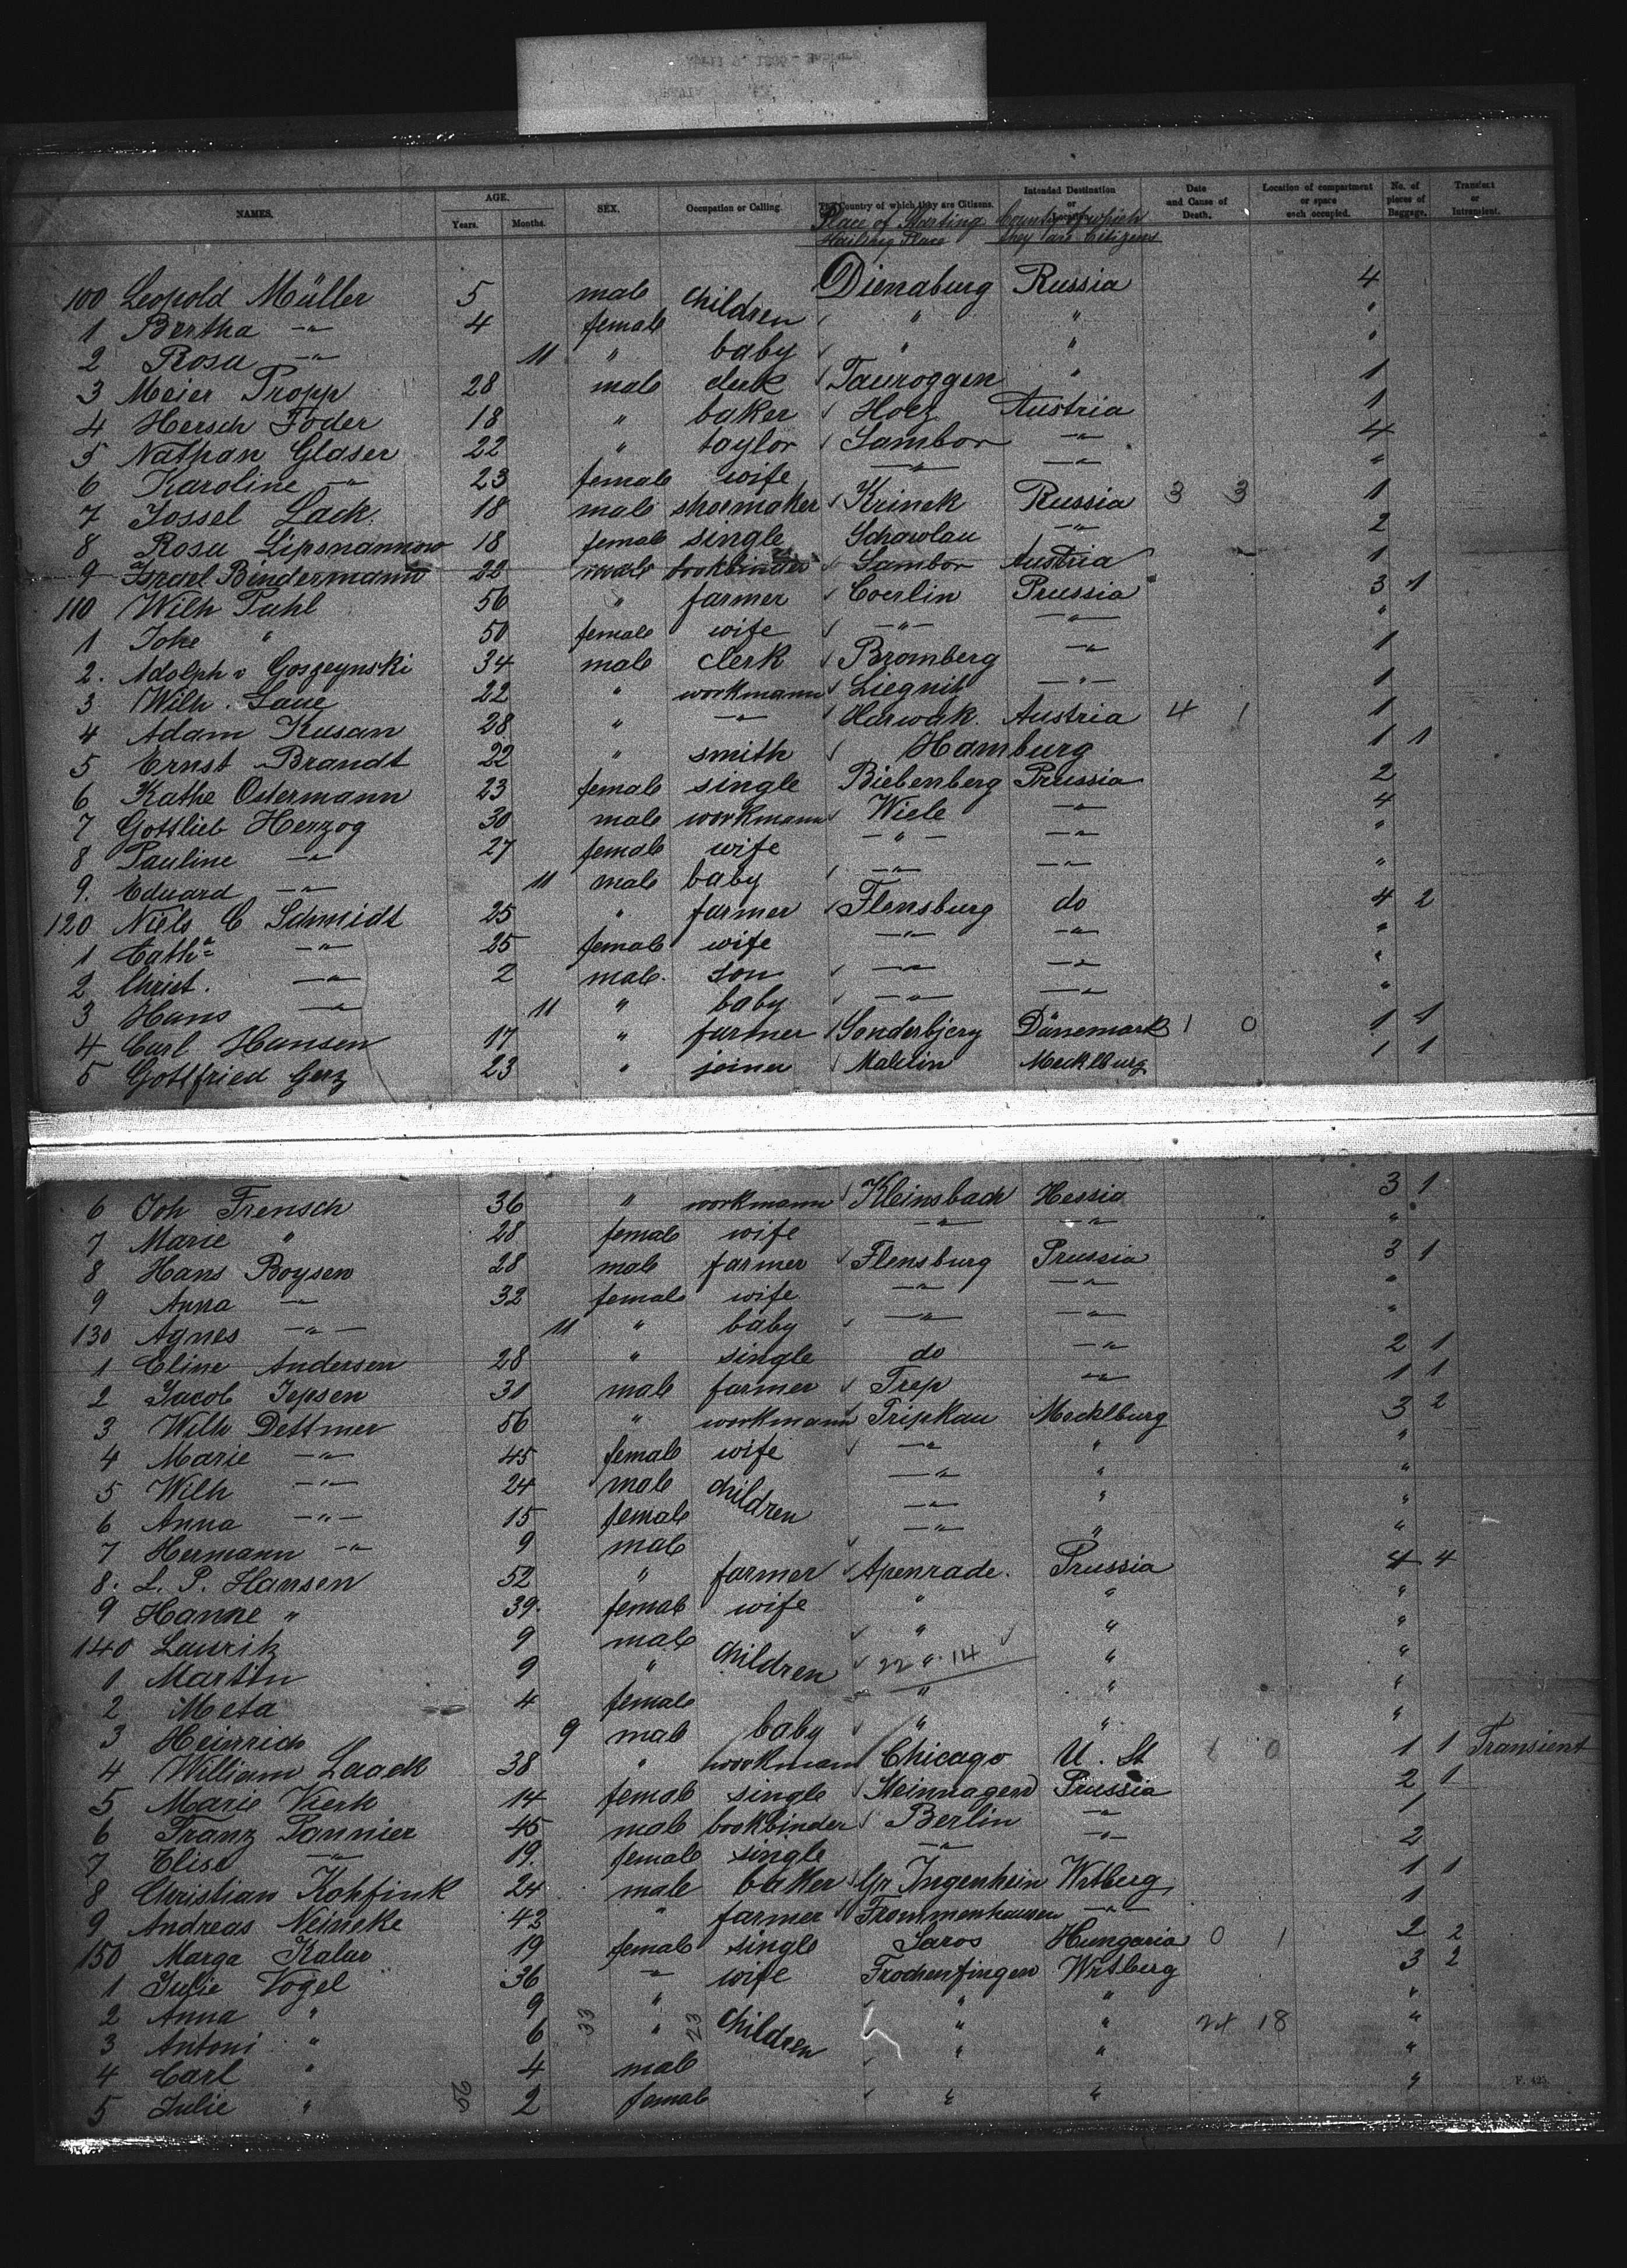 NAMES. AGE. SEX. Occupation or Calling. The Country of which they are Citizens. Intended Destination or Date and Cause of Death. Location of compartment or space each occupied. No. of pieces of Baggage. Transient or Intransient.
Years. Months. Place of Starting Country of which
Hailing Place they are Citizens
100 Leopold Müller 5 male children Dienaburg Russia 4
1 Bertha -"- 4 female " " "
2 Rosa -"- 11 " baby " " "
3 Meier Propp 28 male clerk Tauroggen " 1
4 Hersch Foder 18 " baker Austria 1
5 Nathan Glaser 22 " taylor Sambor -"- 4
6 Karoline -"- 23 female wife -"- -"- "
7 Jossel Lack 18 male shoemaker Krinek Russia 3 3 1
8 Rosa Lipsmannow 18 female single Schawlau -"- 2
9 Israel Bindermann 22 male bookbinder Sambor Austria 1
110 Wilh Puhl 56 " farmer Coerlin Prussia 3 1
1 Johe " 50 female wife -"- -"- "
2. Adolph v Goszeynski 34 male clerk Bromberg -"- 1
3 Wilh. Laue 22 " workmann Liegnitz -"- 1
4 Adam Kusan 28 " -"- Austria 4 1 1
5 Ernst Brandt 22 " smith Hamburg 1 1
6 Kathe Ostermann 23 female single Biebenberg Prussia 2
7 Gottlieb Herzog 30 male workmann Wiele -"- 4
8 Pauline -"- 27 female wife -"- -"- "
9. Eduard -"- 11 male baby -"- -"- "
120 Niels C Schmidt 25 " farmer Flensburg do 4 2
1 Cath -"- 25 female wife -"- -"- "
2 Christ. -"- 2 male. son -"- -"- "
3 Hans -"- 11 " baby -"- -"- "
4 Carl Hansen 17 " farmer Sonderbjerg Dänemark 1 0 1 1
5 Gottfried Gerz 23 " joiner Malchin Mecklburg 1 1
6 Joh Frensch 36 " workmann Kleinsbach Hessia 3 1
7 Marie " 28 female wife -"- -"- "
8 Hans Boysen 28 male farmer Flensburg Prussia 3 1
9 Anna -"- 32 female wife -"- -"- "
130 Agnes -"- 11 " baby -"- -"- "
1 Eline Andersen 28 " single do -"- 2 1
2 Jacob Jepsen 31 male farmer Trep -"- 1 1
3 Wilh Dettmer 56 " workmann Tripkau Mecklburg 3 2
4 Marie -"- 45 female wife -"- " "
5 Wilh -"- 24 male children -"- " "
6 Anna -"- 15 female -"- " "
7 Hermann -"- 9 male -"- " "
8. L. P. Hansen 52 " farmer Apenrade. Prussia 4 4
9 Hanne " 39. female wife " " "
140 Laurih 9 male children " " "
1 Martin 9 " 22 " 14 " "
2 Meta 4 female " " "
3 Heinrich 9 male baby " " "
4 William Laack 38 " workman Chicago U. St 0 1 1 Transient
5 Marie Vierk 14 female single Steinhagen Prussia 2 1
6 Franz Pannier 45 male bookbinder Berlin -"- 1
7 Elise -"- 19. female single -"- -"- 2
8 Christian Kohfink 24 male baker Gr Ingenhein Wrtberg 1 1
9 Andreas Neineke 43 " farmer Frommenhausen -"- 1
150 Marga Kalav 19 female single Saros Hungaria 0 1 2 2
1 Julie Vogel 36 -"- wife Trochenfingen Wrtberg 3 2
2 Anna " 9 " children " " "
3 Antoni " 6 33 " 23 " " 24 18 "
4 Carl " 4 male " " "
5 Julie " 25 2 female " " "